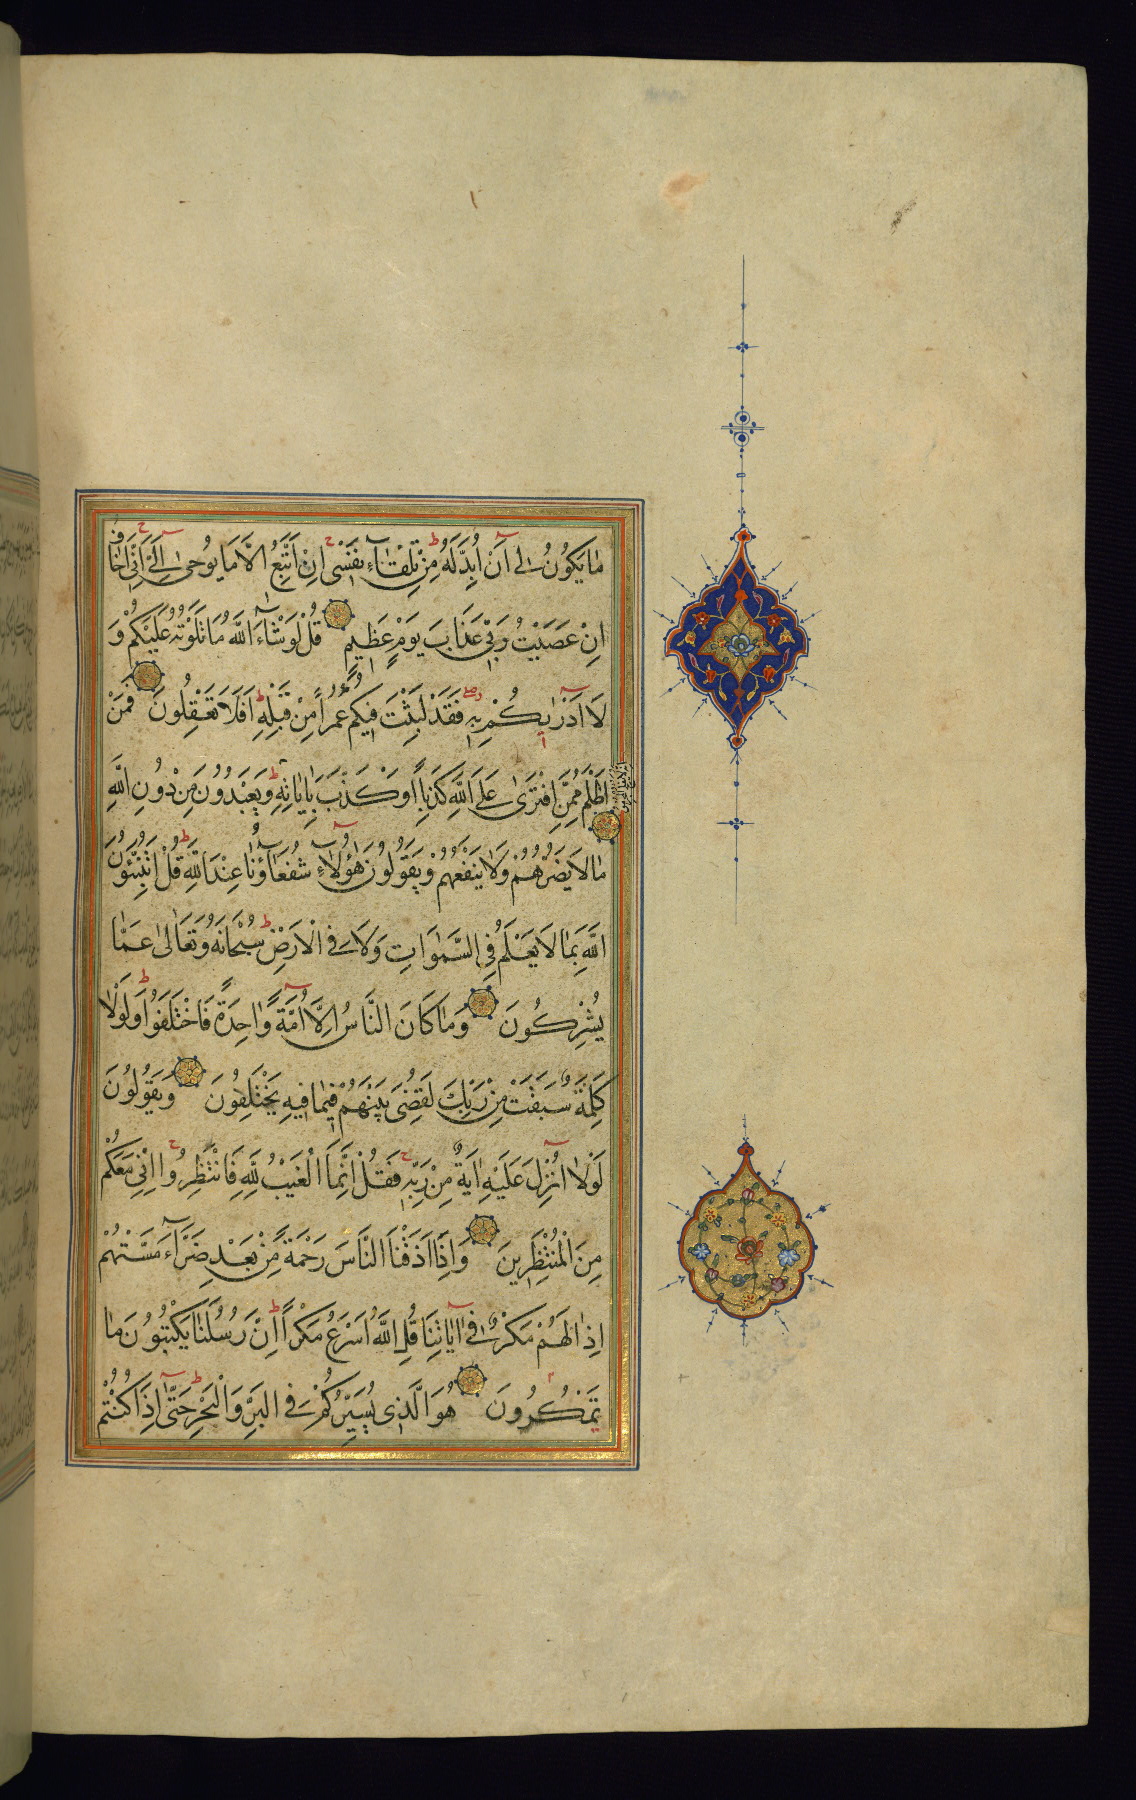 مَا يَكُونُ لِي اَنْ اُبَدِّلَهُ مِنْ تِلْقَاءِ نَفْسِي اِنْ اَتَّبِعُ اِلَّا مَا يُوحٰى اِلَيَّ اِنِّي اَخَافُ
اِنْ عَصَيْتُ رَبِّي عَذَابَ يَوْمٍ عَظِيمٍ قُلْ لَوْ شَاءَ اللّٰهُ مَا تَلَوْتُهُ عَلَيْكُمْ وَ
لَا اَدْرٰيكُمْ بِهِ فَقَدْ لَبِثْتُ فِيكُمْ عُمُرًا مِنْ قَبْلِهِ اَفَلَا تَعْقِلُونَ فَمَنْ
اَظْلَمُ مِمَّنِ افْتَرٰى عَلَى اللّٰهِ كَذِبًا اَوْ كَذَّبَ بِاٰيَاتِهِ وَيَعْبُدُونَ مِنْ دُونِ اللّٰهِ
مَا لَا يَضُرُّهُمْ وَلَا يَنْفَعُهُمْ وَيَقُولُونَ هٰؤُلَاءِ شُفَعَاؤُنَا عِنْدَ اللّٰهِ قُلْ اَتُنَبِّئُونَ
اللّٰهَ بِمَا لَا يَعْلَمُ فِي السَّمٰوَاتِ وَلَا فِي الْاَرْضِ سُبْحَانَهُ وَتَعَالٰى عَمَّا
يُشْرِكُونَ وَمَا كَانَ النَّاسُ اِلَّا اُمَّةً وَاحِدَةً فَاخْتَلَفُوا وَلَوْلَا
كَلِمَةٌ سَبَقَتْ مِنْ رَبِّكَ لَقُضِيَ بَيْنَهُمْ فِيمَا فِيهِ يَخْتَلِفُونَ وَيَقُولُونَ
لَوْلَا اُنْزِلَ عَلَيْهِ اٰيَةٌ مِنْ رَبِّهِ فَقُلْ اِنَّمَا الْغَيْبُ لِلّٰهِ فَانْتَظِرُوا اِنِّي مَعَكُمْ
مِنَ الْمُنْتَظِرِينَ وَاِذَا اَذَقْنَا النَّاسَ رَحْمَةً مِنْ بَعْدِ ضَرَّاءَ مَسَّتْهُمْ
اِذَا لَهُمْ مَكْرٌ فِي اٰيَاتِنَا قُلِ اللّٰهُ اَسْرَعُ مَكْرًا اِنَّ رُسُلَنَا يَكْتُبُونَ مَا
تَمْكُرُونَ هُوَ الَّذِي يُسَيِّرُكُمْ فِي الْبَرِّ وَالْبَحْرِ حَتّٰى اِذَا كُنْتُمْ